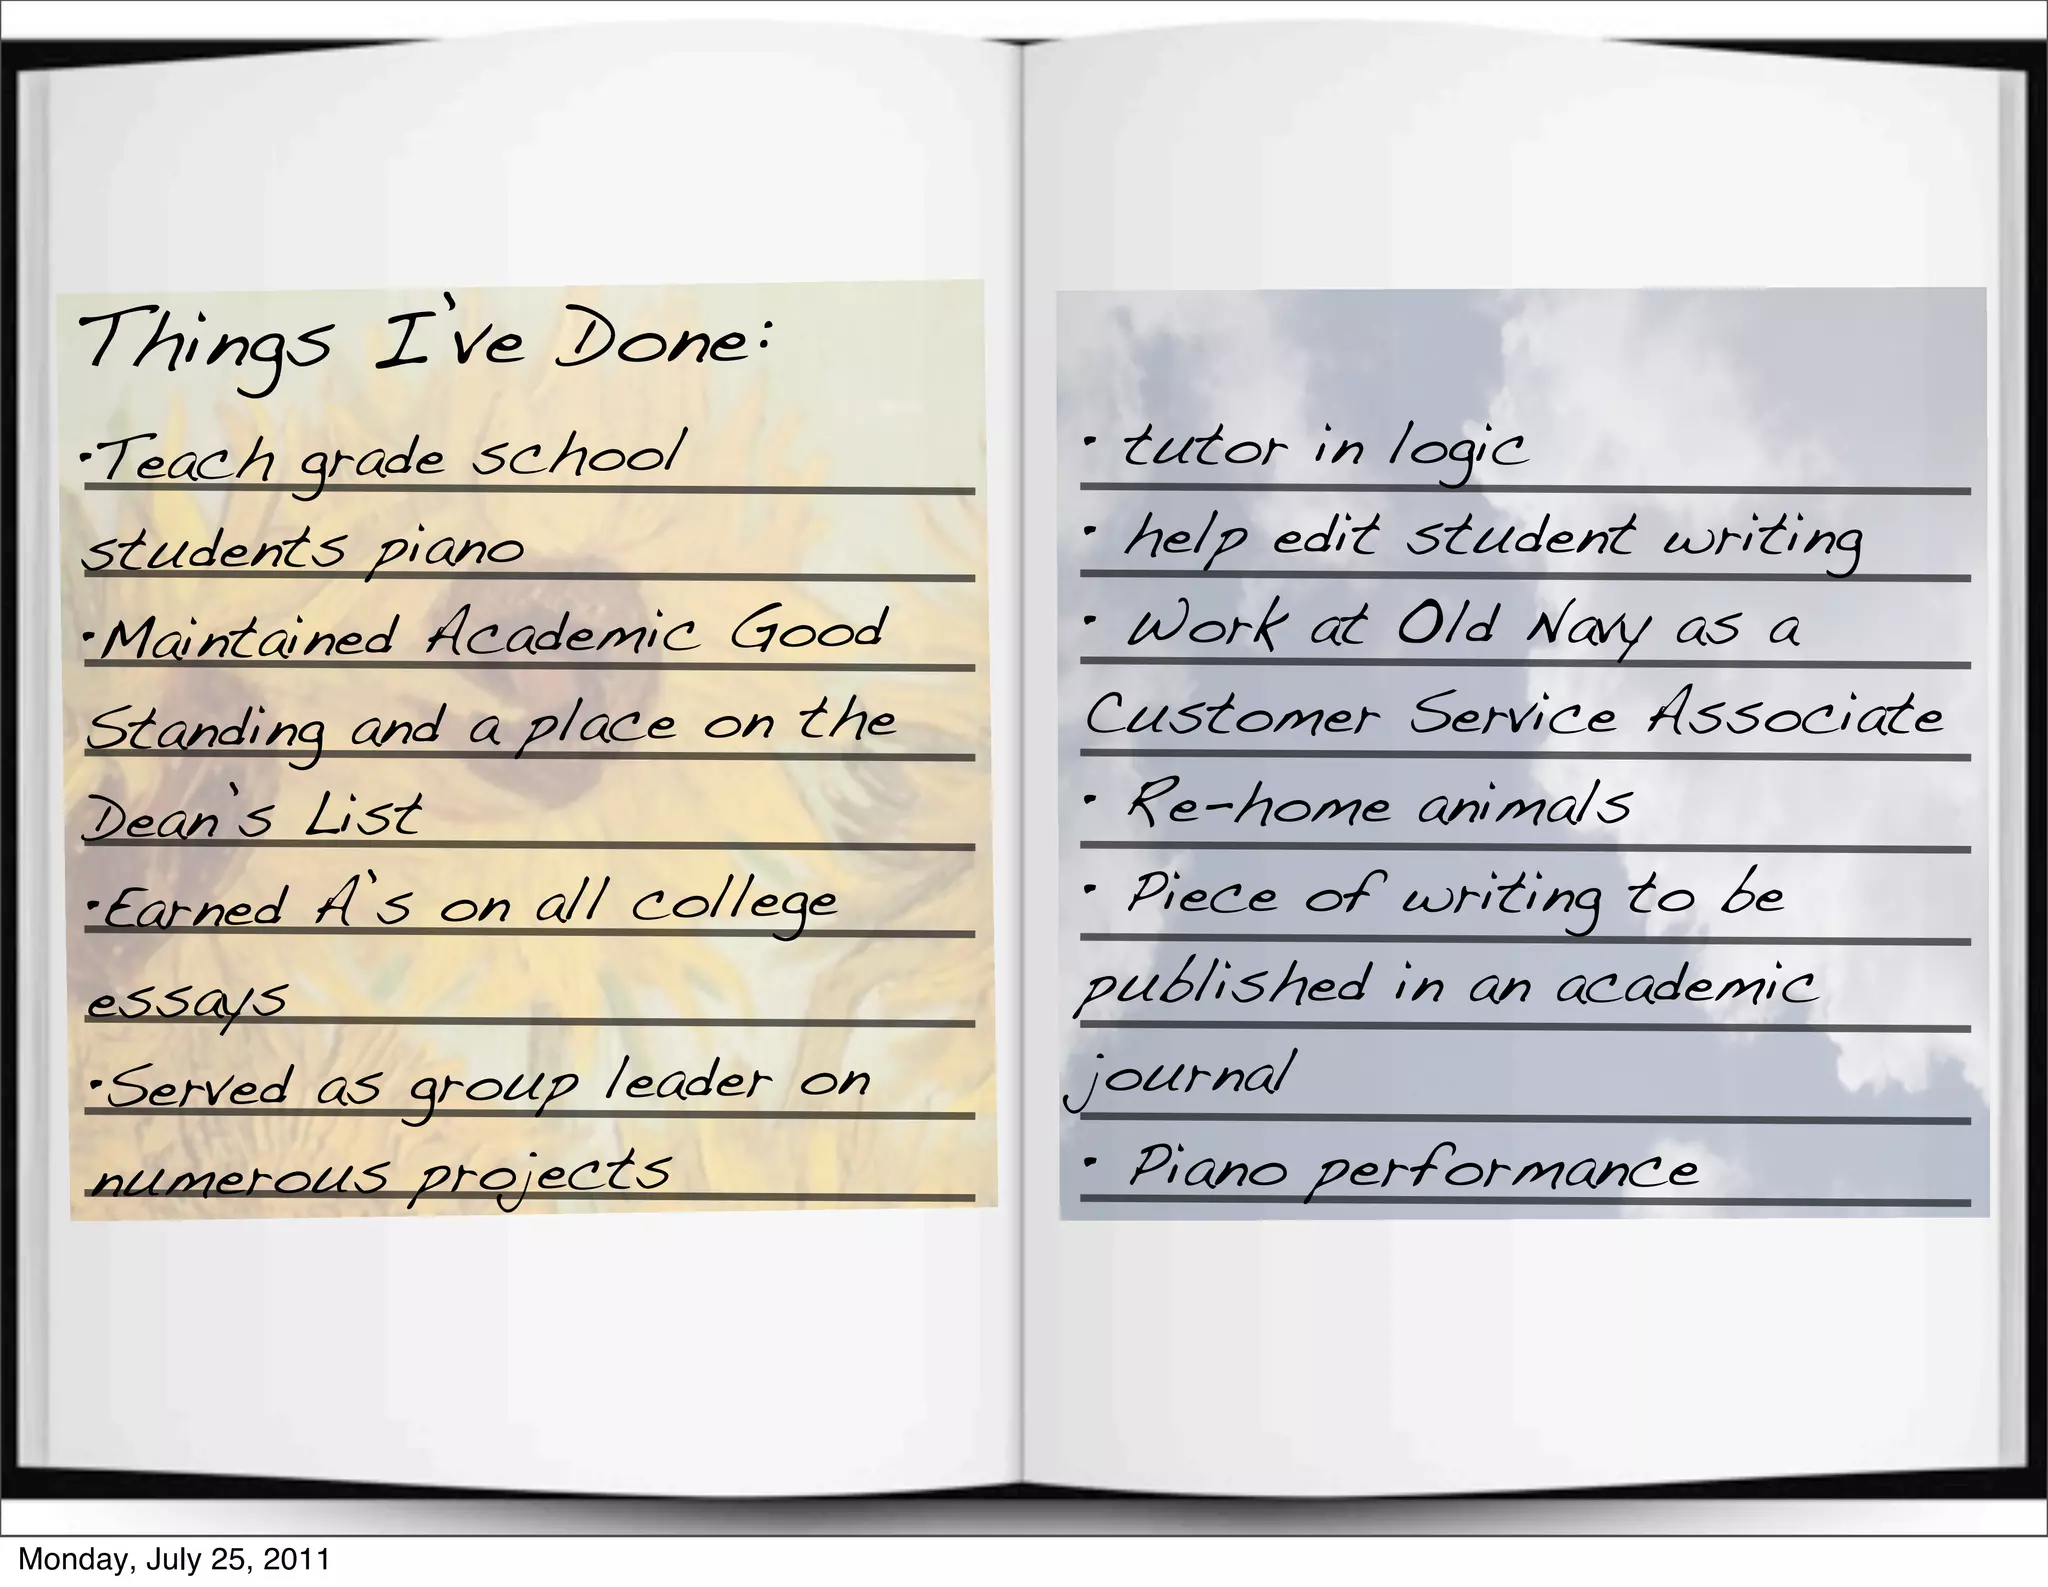 Things I've Done:
•Teach grade school
students piano
•Maintained Academic Good
Standing and a place on the
Dean's List
•Earned A's on all college
essays
•Served as group leader on
numerous projects
• tutor in logic
• help edit student writing
• Work at Old Navy as a
Customer Service Associate
• Re-home animals
• Piece of writing to be
published in an academic
journal
• Piano performance
Monday, July 25, 2011